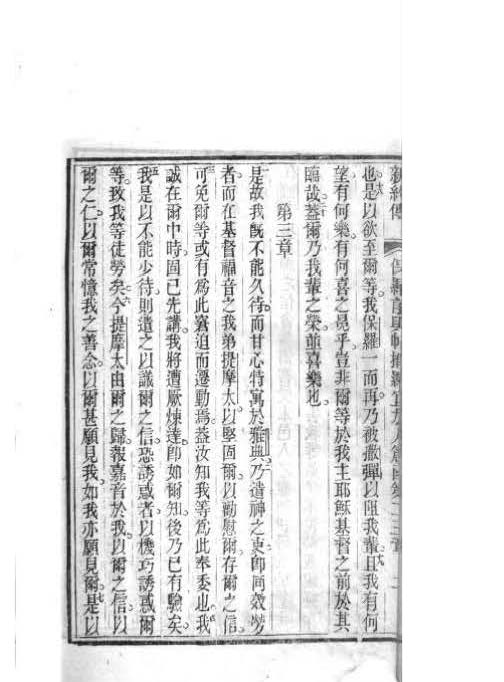 也是以欲至爾等我保羅一而再乃被撒彈以阻我輩且我有何
望有何樂有何喜之冕乎豈非爾等於我主耶穌基督之前於其
臨哉蓋爾乃我輩之榮並喜樂也
第三章
是故我既不能久待而甘心特寓於雅典乃遣神之吏卽同效勞
者而在基督福音之我弟提摩太以堅固爾以勸慰爾存爾之信
可免爾等或有爲此窘迫而遷動焉蓋汝知我等爲此奉委也我
誠在爾中時固已先講我將遭厭煉達卽如爾知後乃已有驗矣
我是以不能少待則遣之以識爾之信恐誘惑者以機巧誘惑爾
等致我等徒勞矣今提摩太由爾之歸報嘉音於我以爾之信以
爾之仁以爾常憶我之善念以爾甚願見我如我亦願見爾是以